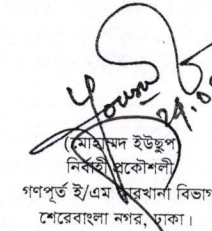 Yousuf
29.0
(মোহাম্মদ ইউছুপ
নির্বাহী প্রকৌশলী
গণপূর্ত ই/এম কারখানা বিভাগ
শেরেবাংলা নগর, ঢাকা।